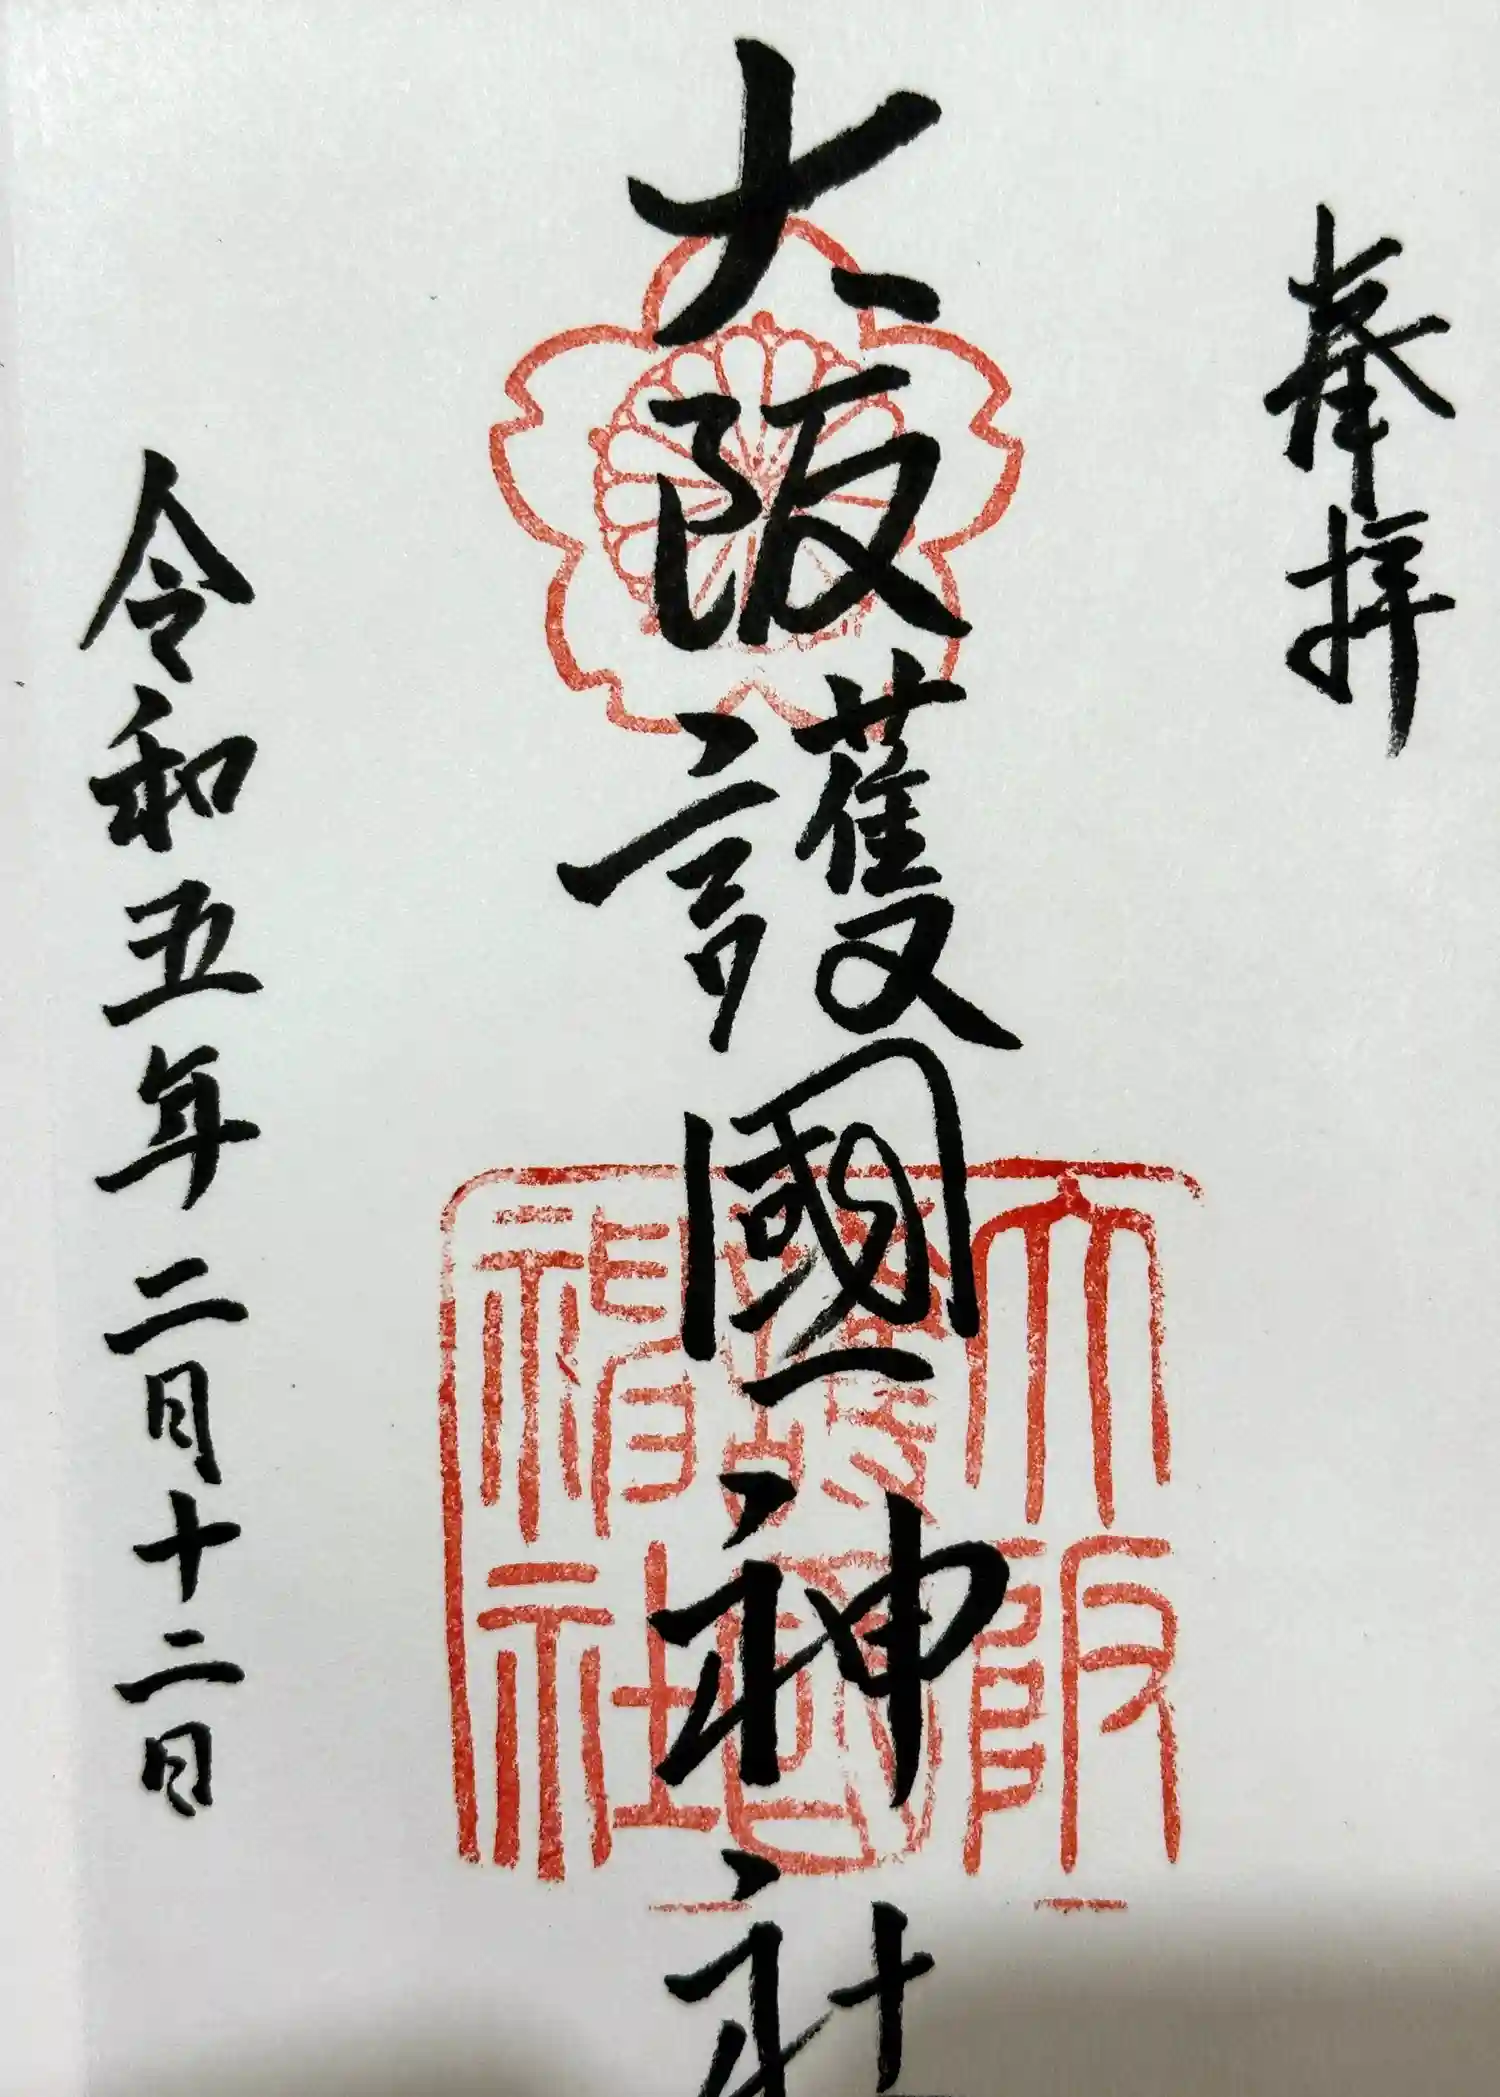 奉拝
大阪護國神社
令和五年二月十二日
大阪
護国
神社